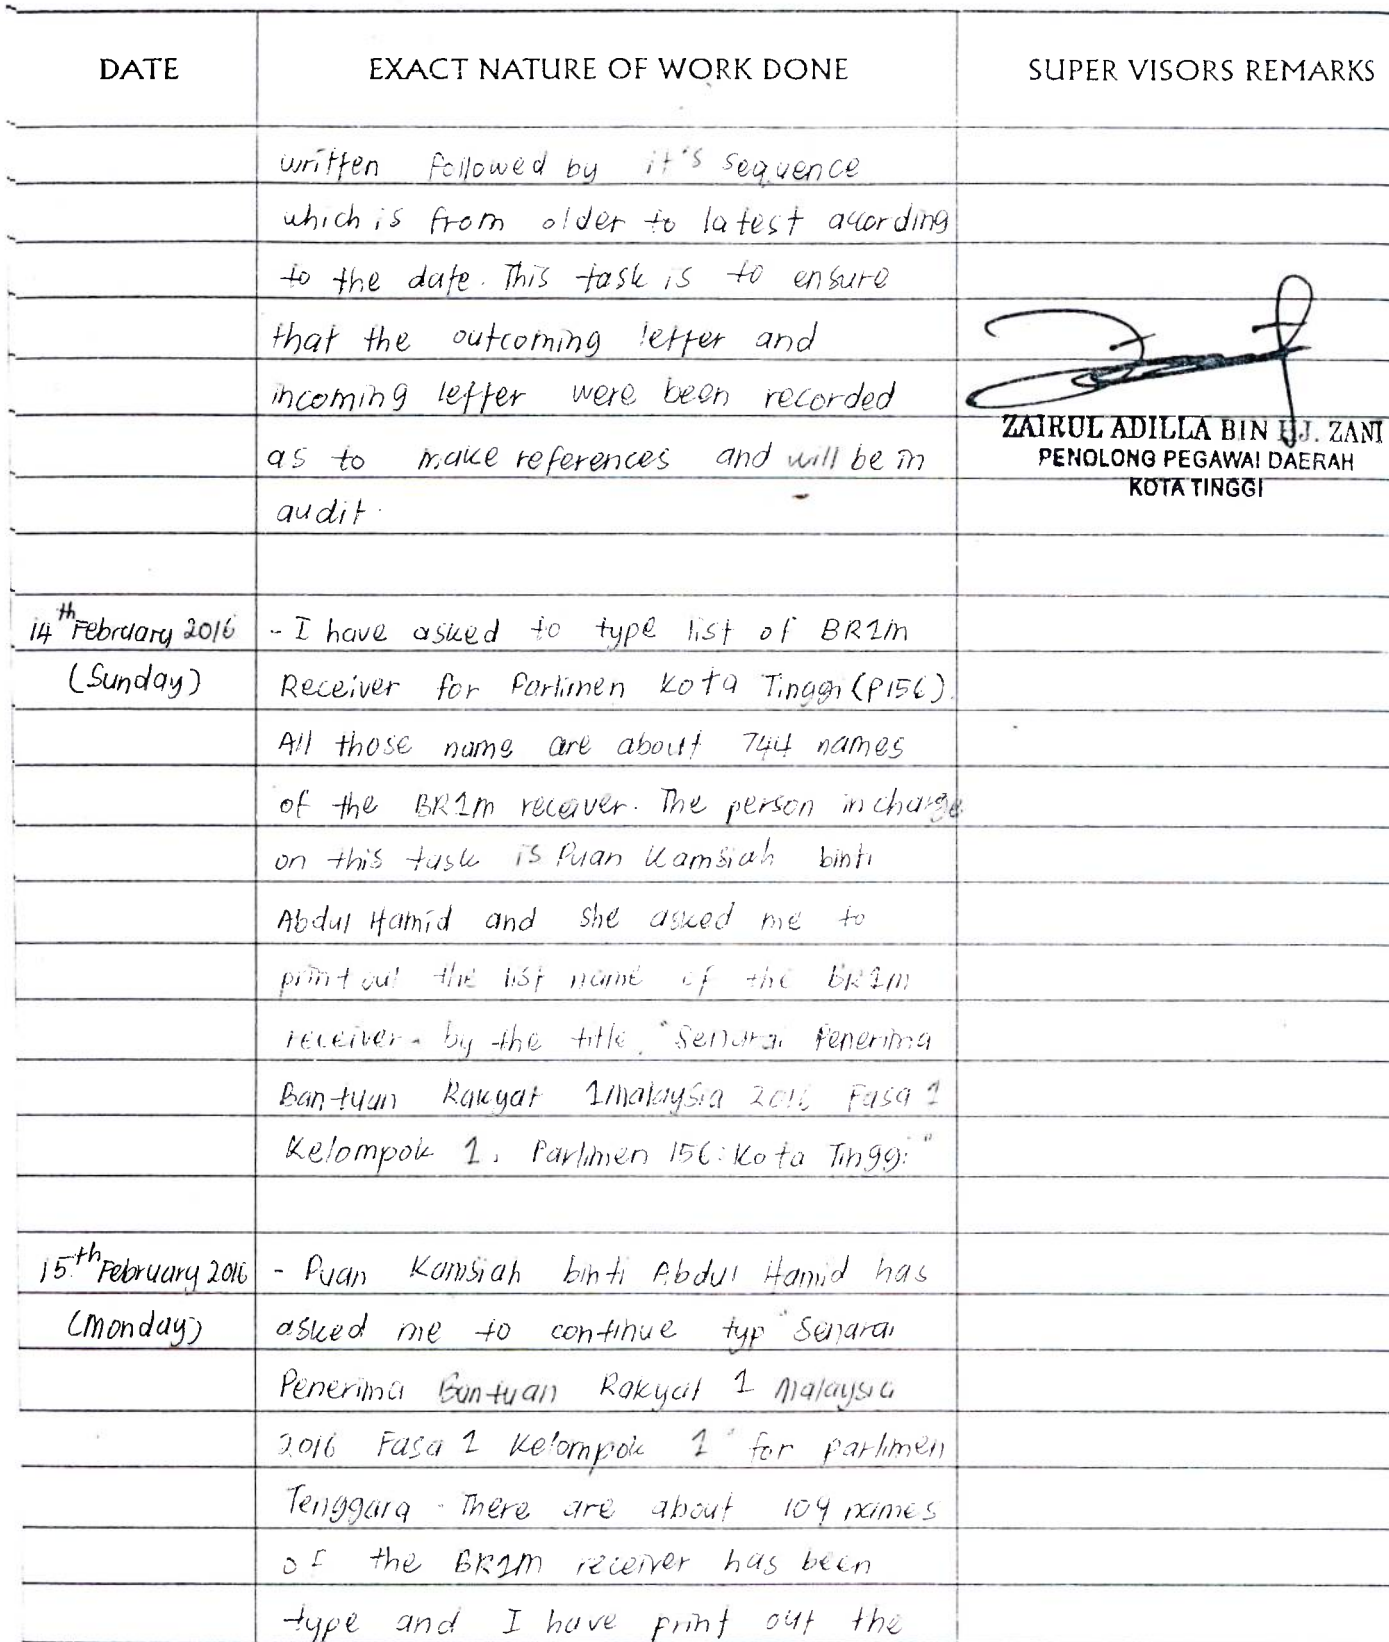 DATE EXACT NATURE OF WORK DONE SUPER VISORS REMARKS
written followed by it's sequence
which is from older to latest acording
to the date. This task is to ensure
that the outcoming letter and
incoming letter were been recorded
as to make references and will be in
audit.
ZAIRUL ADILLA BIN HJ. ZANI
PENOLONG PEGAWAI DAERAH
KOTA TINGGI
14th February 2016 - I have asked to type list of BR1M
(Sunday) Receiver for Parlimen Kota Tinggi (P156).
All those name are about 744 names
of the BR1M receiver. The person in charge
on this task is Puan Kamsiah binti
Abdul Hamid and she asked me to
print out the list name of the BR1M
receiver by the title, "Senarai Penerima
Bantuan Rakyat 1Malaysia 2016 Fasa 1
Kelompok 1, Parlimen 156: Kota Tinggi"
15th February 2016 - Puan Kamsiah binti Abdul Hamid has
(Monday) asked me to continue typ "Senarai
Penerima Bantuan Rakyat 1 Malaysia
2016 Fasa 1 Kelompok 1" for parlimen
Tenggara. There are about 109 names
of the BR1M receiver has been
type and I have print out the